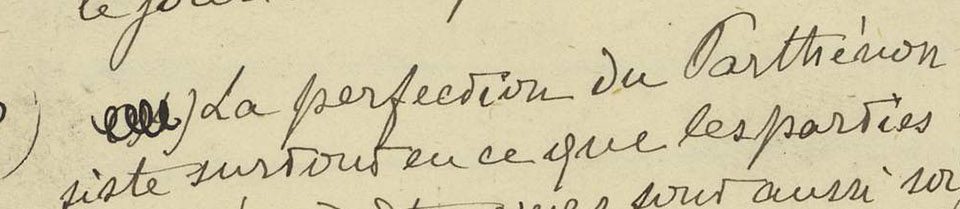 La perfection du Parthénon
siste surtout en ce que les parties
sont aussi